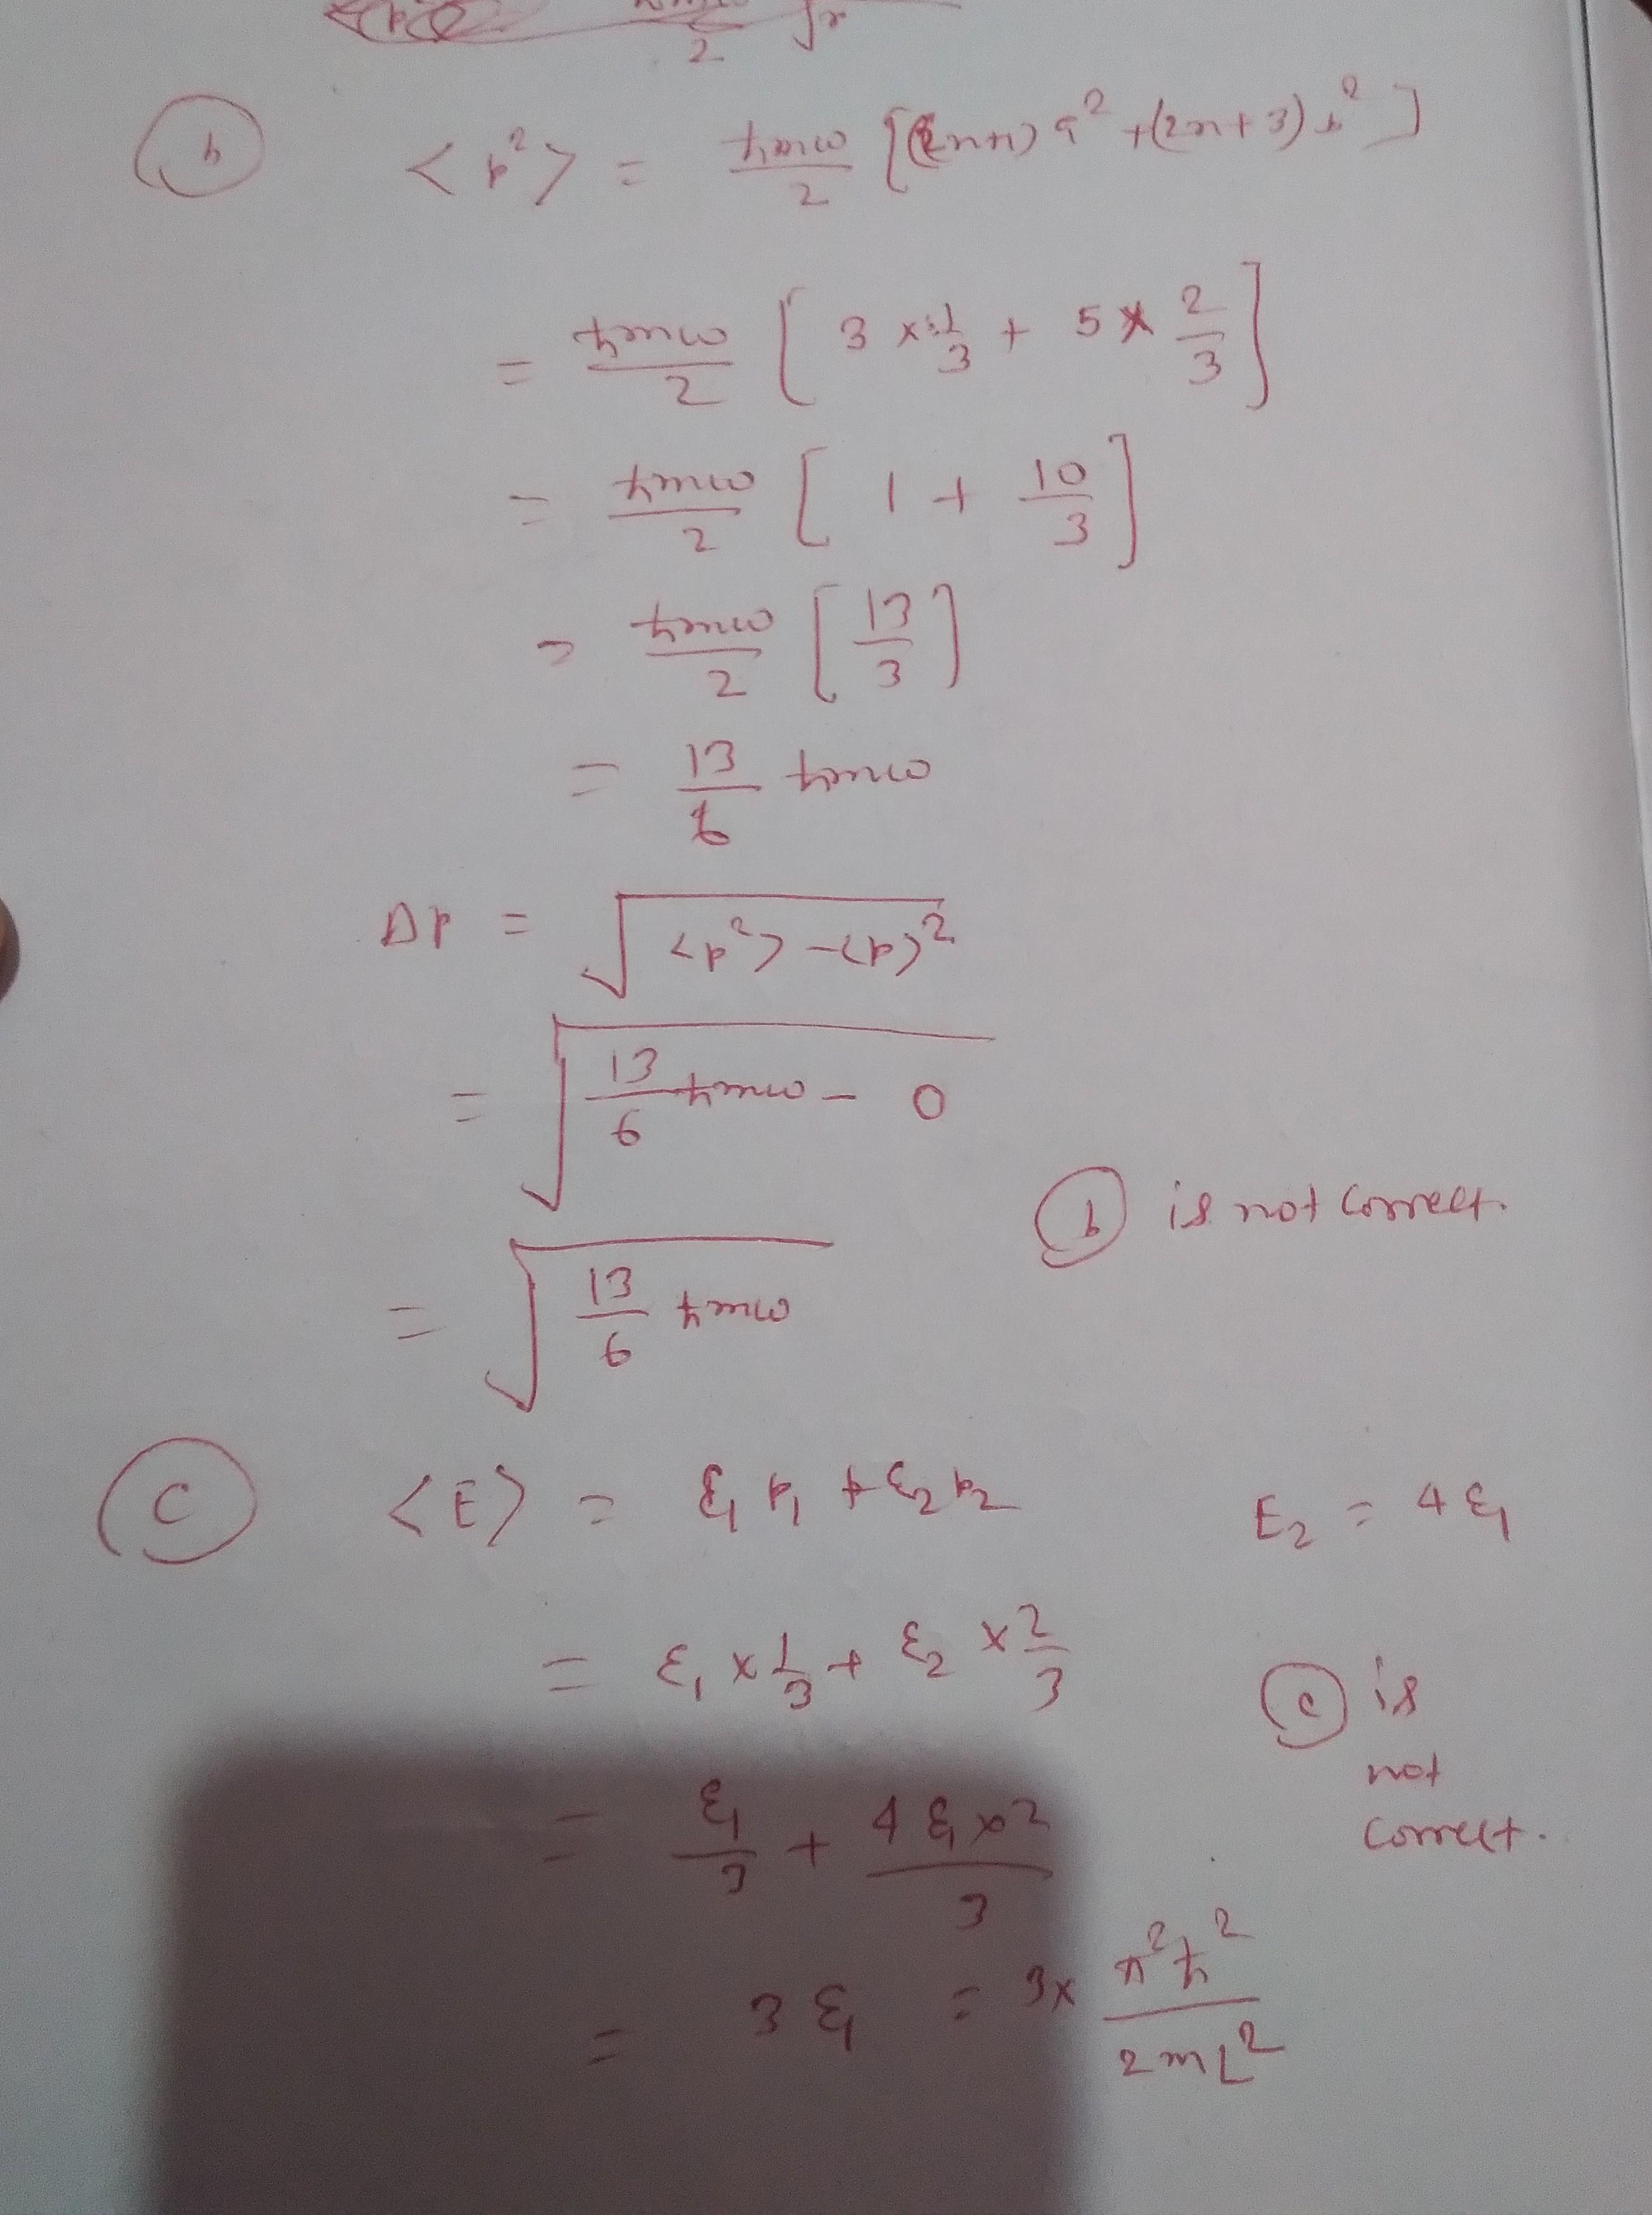 (b) <p²> = ħmω/2 [(2n+1) a² + (2n+3) b²]
= ħmω/2 [3 × 1/3 + 5 × 2/3]
= ħmω/2 [1 + 10/3]
= ħmω/2 [13/3]
= 13/6 ħmω
Δp = √(<p²> - <p>²)
= √(13/6 ħmω - 0)
(b) is not correct.
= √(13/6 ħmω)
(c) <E> = ε₁ p₁ + ε₂ p₂ E₂ = 4 ε₁
= ε₁ × 1/3 + ε₂ × 2/3
(c) is
not
correct.
= ε₁/3 + 4 ε₁ × 2/3
= 3 ε₁ = 3 × π²ħ²/2mL²